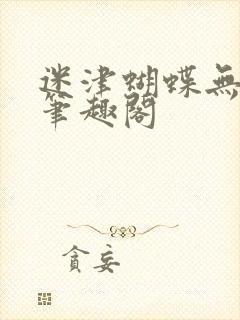 迷津蝴蝶無
筆趣閣
貪妄